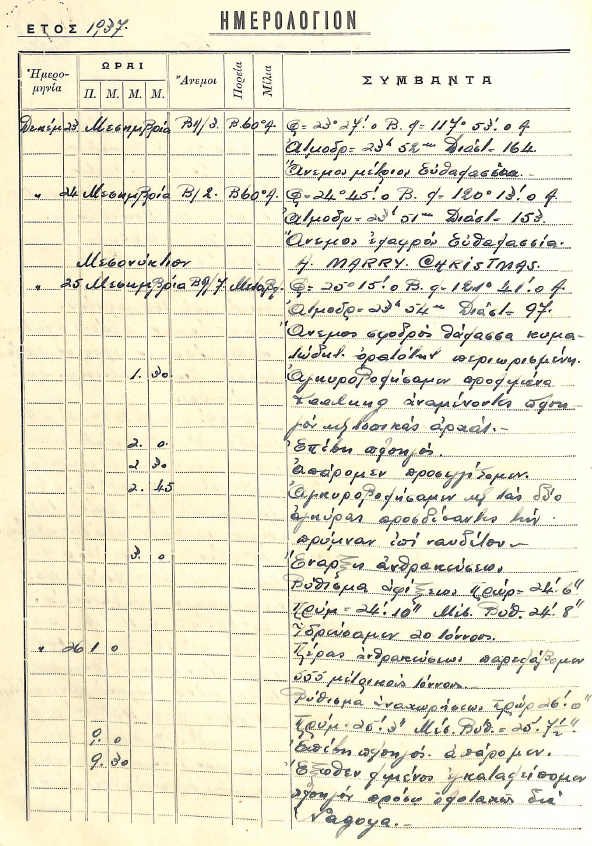 ΗΜΕΡΟΛΟΓΙΟΝ
ΕΤΟΣ 1937.
Ἡμερομηνία ΩΡΑΙ Π. Μ. Μ. Μ. Ἄνεμοι Πορεία Μίλια ΣΥΜΒΑΝΤΑ
Δεκεμ 23 Μεσημβρία ΒΑ/3. Β.60°Α. φ=23° 27'.0 Β. λ=117° 53'.0 Α
Ἀτμοδρ=23h 52m Διάστ=164.
Ἄνεμος μέτριος εὐθαλασσία.
" 24 Μεσημβρία Β/2. Β60°Α. φ=24° 45'.0 Β. λ=120° 13'.0 Α.
Ἀτμοδρ=23h 51m Διάστ=153.
Ἄνεμος ἐλαφρός εὐθαλασσία.
Μεσονύκτιον A. MARRY. CHRISTMAS.
" 25 Μεσημβρία ΒΑ/7. Μεταβλ. φ=25° 15'.0 Β. λ=121° 41'.0 Α.
Ἀτμοδρ=23h 54m Διάστ=97.
Ἄνεμος σφοδρός θάλασσα κυμα-
τώδης. ὁρατότης περιωρισμένη.
1. 30. Ἀγκυροβολήσαμεν προλιμένα
ἀναμένοντες πλοη-
γόν τοπικάς ἀρχάς.-
2. 0. Ἐπέβη πλοηγός.
2 30 ἀπάρομεν προσεγγίσομεν.
2. 45 Ἀγκυροβολήσαμεν μέ τάς δύο
ἀγκύρας προσδέσαντες τήν
πρύμναν ἐπί ναυδέτου.-
3. 0 Ἔναρξις ἀνθρακεύσεως
Βύθισμα ἀφίξεως Πρώρ=24'.6"
Πρύμ=24'.10" Μέσ. Βυθ. 24'.8"
Ὑδρεύσαμεν 20 τόννους.
" 26 1 0 Πέρας ἀνθρακεύσεως παρελάβομεν
μετρικούς τόννους
Βύθισμα ἀναχωρήσεως Πρώρ 26'.0"
Πρύμ=25'.3" Μέσ. Βυθ.=25'.7½"
9. 0 Ἐπέβη πλοηγός. ἀπάρομεν.
9. 30 Ἔξωθεν λιμένος ἐγκαταλείπομεν
πλοηγόν πρόσω ὁλοταχῶς διά
Nagoya.-